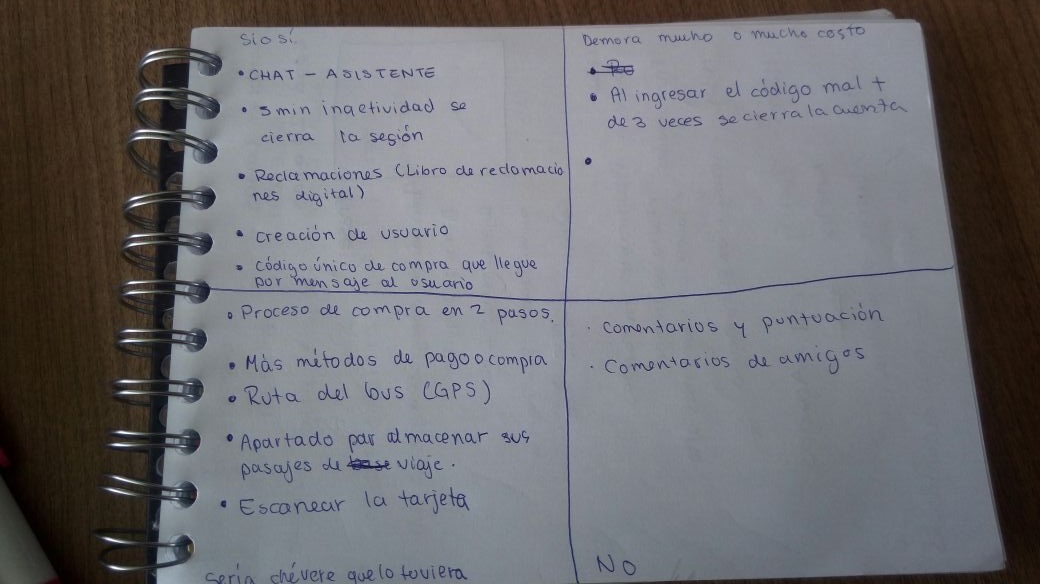 Sí o sí.
• CHAT - ASISTENTE
• 5 min inactividad se
cierra la sesión
• Reclamaciones (Libro de reclamacio
nes digital)
• Creación de usuario
• Código único de compra que llegue
por mensaje al usuario
Demora mucho o mucho costo
• Al ingresar el código mal +
de 3 veces se cierra la cuenta
•
• Proceso de compra en 2 pasos.
• Más métodos de pago o compra
• Ruta del bus (GPS)
• Apartado par almacenar sus
pasajes de viaje.
• Escanear la tarjeta
Sería chévere que lo tuviera
· Comentarios y puntuación
· Comentarios de amigos
NO